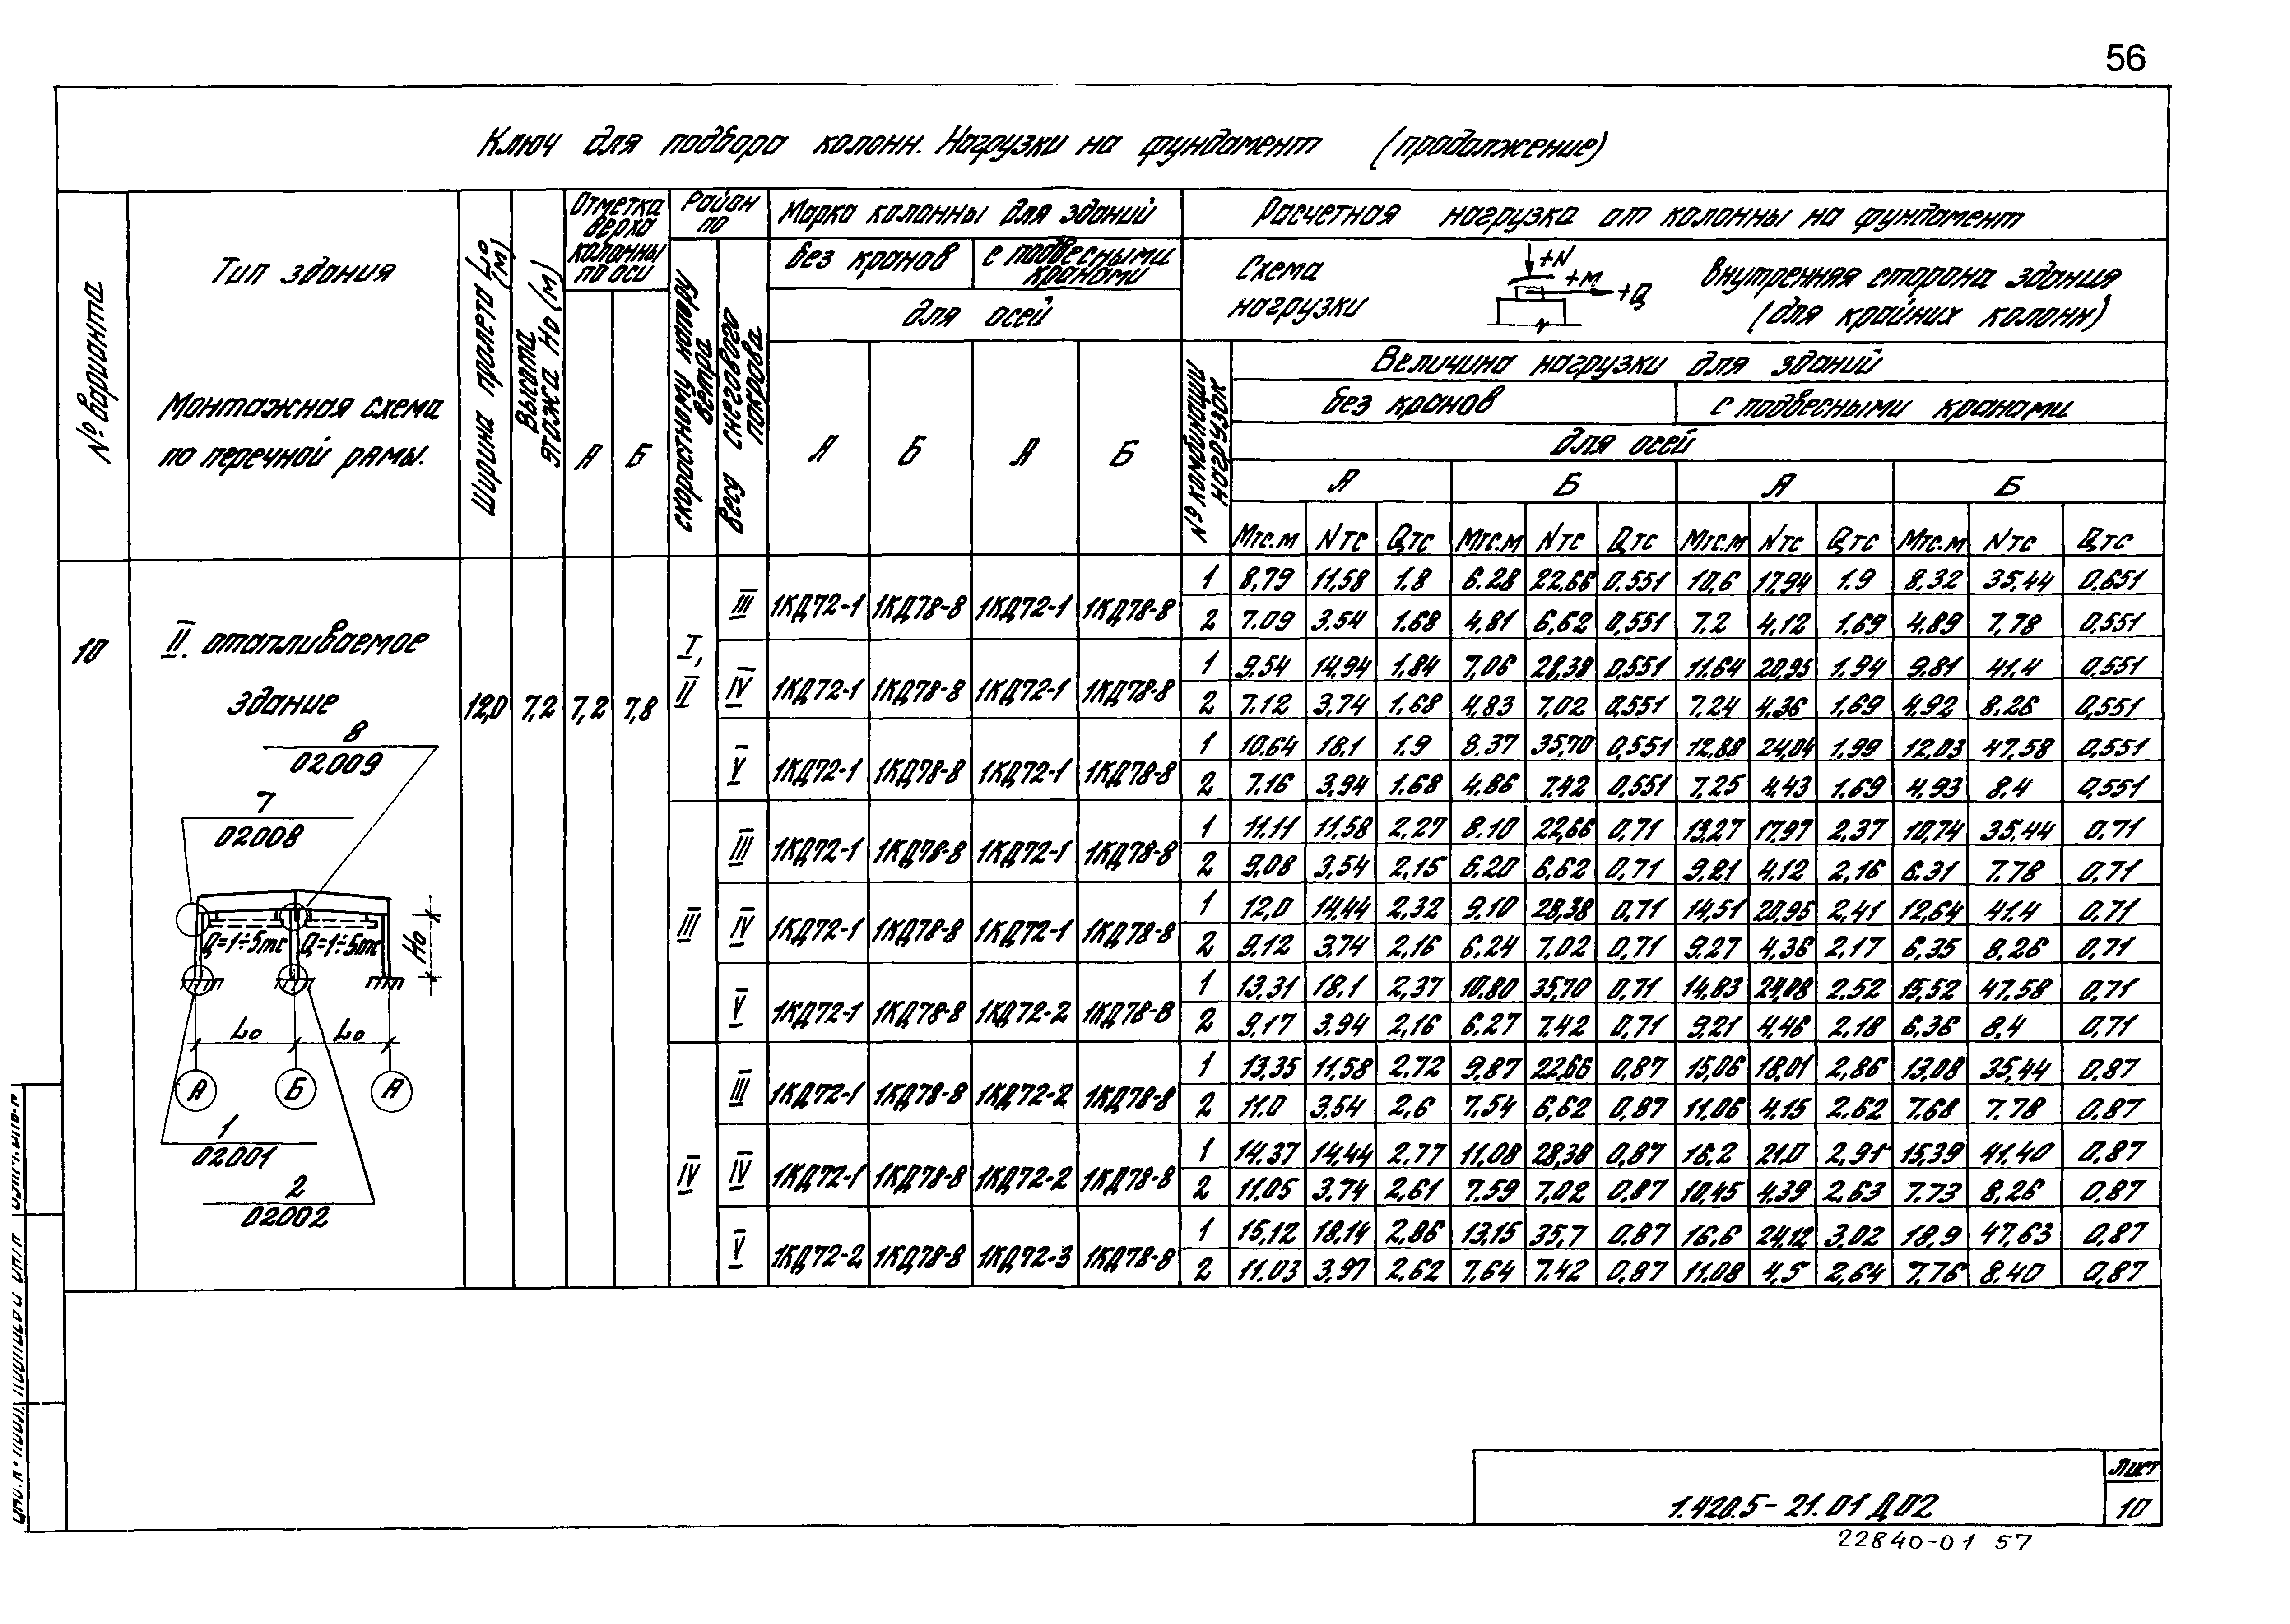 56
Ключ для подбора колонн. Нагрузки на фундамент (продолжение)
№ варианта
Тип здания
Монтажная схема
по перечной рамы.
Ширина пролета Lo (м)
Высота этажа Но (м)
Отметка верха колонны по оси
А Б
Район по
скоростному напору ветра
весу снегового покрова
Марка колонны для зданий
без кранов
с подвесными кранами
для осей
А Б А Б
Расчетная нагрузка от колонны на фундамент
Схема нагрузки
+N
+M
+Q
внутренняя сторона здания
(для крайних колонн)
№ комбинации нагрузок
Величина нагрузки для зданий
без кранов
с подвесными кранами
для осей
А Б А Б
Мтс.м Nтс Qтс Мтс.м Nтс Qтс Мтс.м Nтс Qтс Мтс.м Nтс Qтс
10
II. отапливаемое
здание
12,0 7,2 7,2 7,8
8
02009
7
02008
Q=1÷5тс Q=1÷5тс
Но
Lo Lo
А Б А
1
02001
2
02002
I, II
III 1КД72-1 1КД78-8 1КД72-1 1КД78-8
1 8,79 11,58 1.8 6.28 22,66 0,551 10,6 17,94 1.9 8.32 35,44 0.651
2 7.09 3.54 1.68 4.81 6,62 0,551 7.2 4.12 1.69 4.89 7.78 0,551
IV 1КД72-1 1КД78-8 1КД72-1 1КД78-8
1 9.54 14,94 1,84 7,06 28,38 0,551 11.64 20,95 1.94 9.81 41.4 0,551
2 7.12 3,74 1,68 4,83 7,02 0,551 7,24 4,36 1,69 4,92 8.26 0,551
V 1КД72-1 1КД78-8 1КД72-1 1КД78-8
1 10,64 18.1 1.9 8.37 35,70 0,551 12,88 24,04 1.99 12,03 47.58 0,551
2 7.16 3,94 1.68 4.86 7.42 0,551 7,25 4.43 1.69 4,93 8.4 0,551
III
III 1КД72-1 1КД78-8 1КД72-1 1КД78-8
1 11,11 11,58 2,27 8.10 22,66 0,71 13,27 17,97 2,37 10,74 35.44 0,71
2 9,08 3,54 2,15 6.20 6,62 0,71 9,21 4.12 2,16 6.31 7.78 0,71
IV 1КД72-1 1КД78-8 1КД72-1 1КД78-8
1 12,0 14,44 2,32 9.10 28,38 0,71 14,51 20,95 2,41 12,64 41.4 0.71
2 9,12 3,74 2,16 6.24 7.02 0,71 9,27 4,36 2,17 6,35 8,26 0,71
V 1КД72-1 1КД78-8 1КД72-2 1КД78-8
1 13,31 18.1 2,37 10,80 35,70 0,71 14,83 24,08 2.52 15,52 47.58 0,71
2 9,17 3.94 2,16 6.27 7.42 0,71 9,21 4,46 2.18 6.36 8.4 0,71
IV
III 1КД72-1 1КД78-8 1КД72-2 1КД78-8
1 13,35 11,58 2.72 9,87 22,66 0,87 15,06 18,01 2,86 13,08 35,44 0.87
2 11.0 3.54 2,6 7.54 6,62 0,87 11.06 4.15 2,62 7.68 7.78 0.87
IV 1КД72-1 1КД78-8 1КД72-2 1КД78-8
1 14.37 14,44 2.77 11,08 28,38 0,87 16.2 21.0 2,91 15,39 41.40 0.87
2 11.05 3.74 2,61 7.59 7,02 0,87 10,45 4.39 2,63 7.73 8,26 0,87
V 1КД72-2 1КД78-8 1КД72-3 1КД78-8
1 15,12 18,14 2,86 13,15 35,7 0.87 16.6 24,12 3.02 18,9 47.63 0,87
2 11.03 3.97 2,62 7,64 7.42 0,87 11.08 4,5 2,64 7.76 8.40 0,87
1.420.5-21.01 Д02
Лист
10
22840-01 57